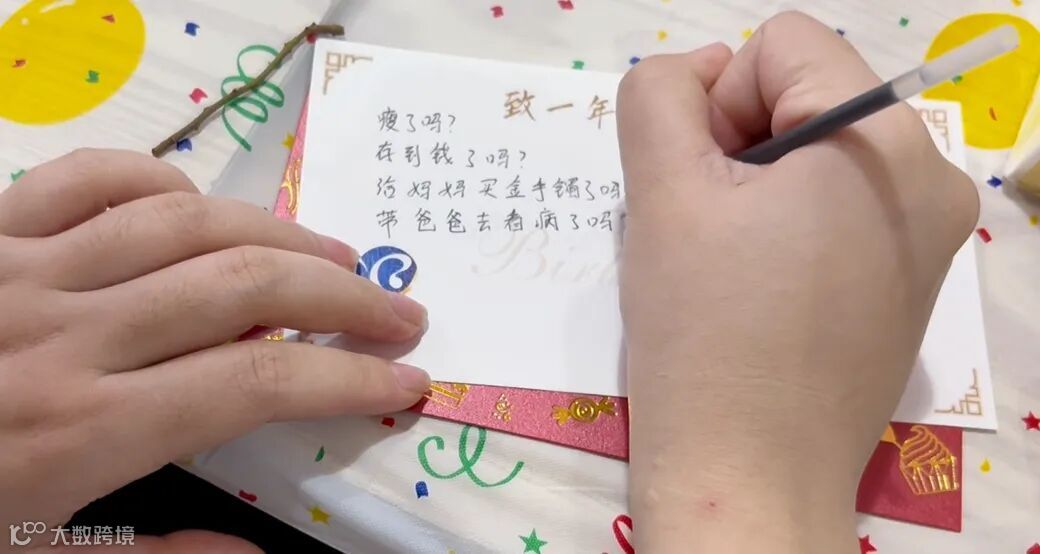 致一年
瘦了吗?
存到钱了吗?
给妈妈买金手镯了吗
带爸爸去看病了吗
Birt
大数跨境